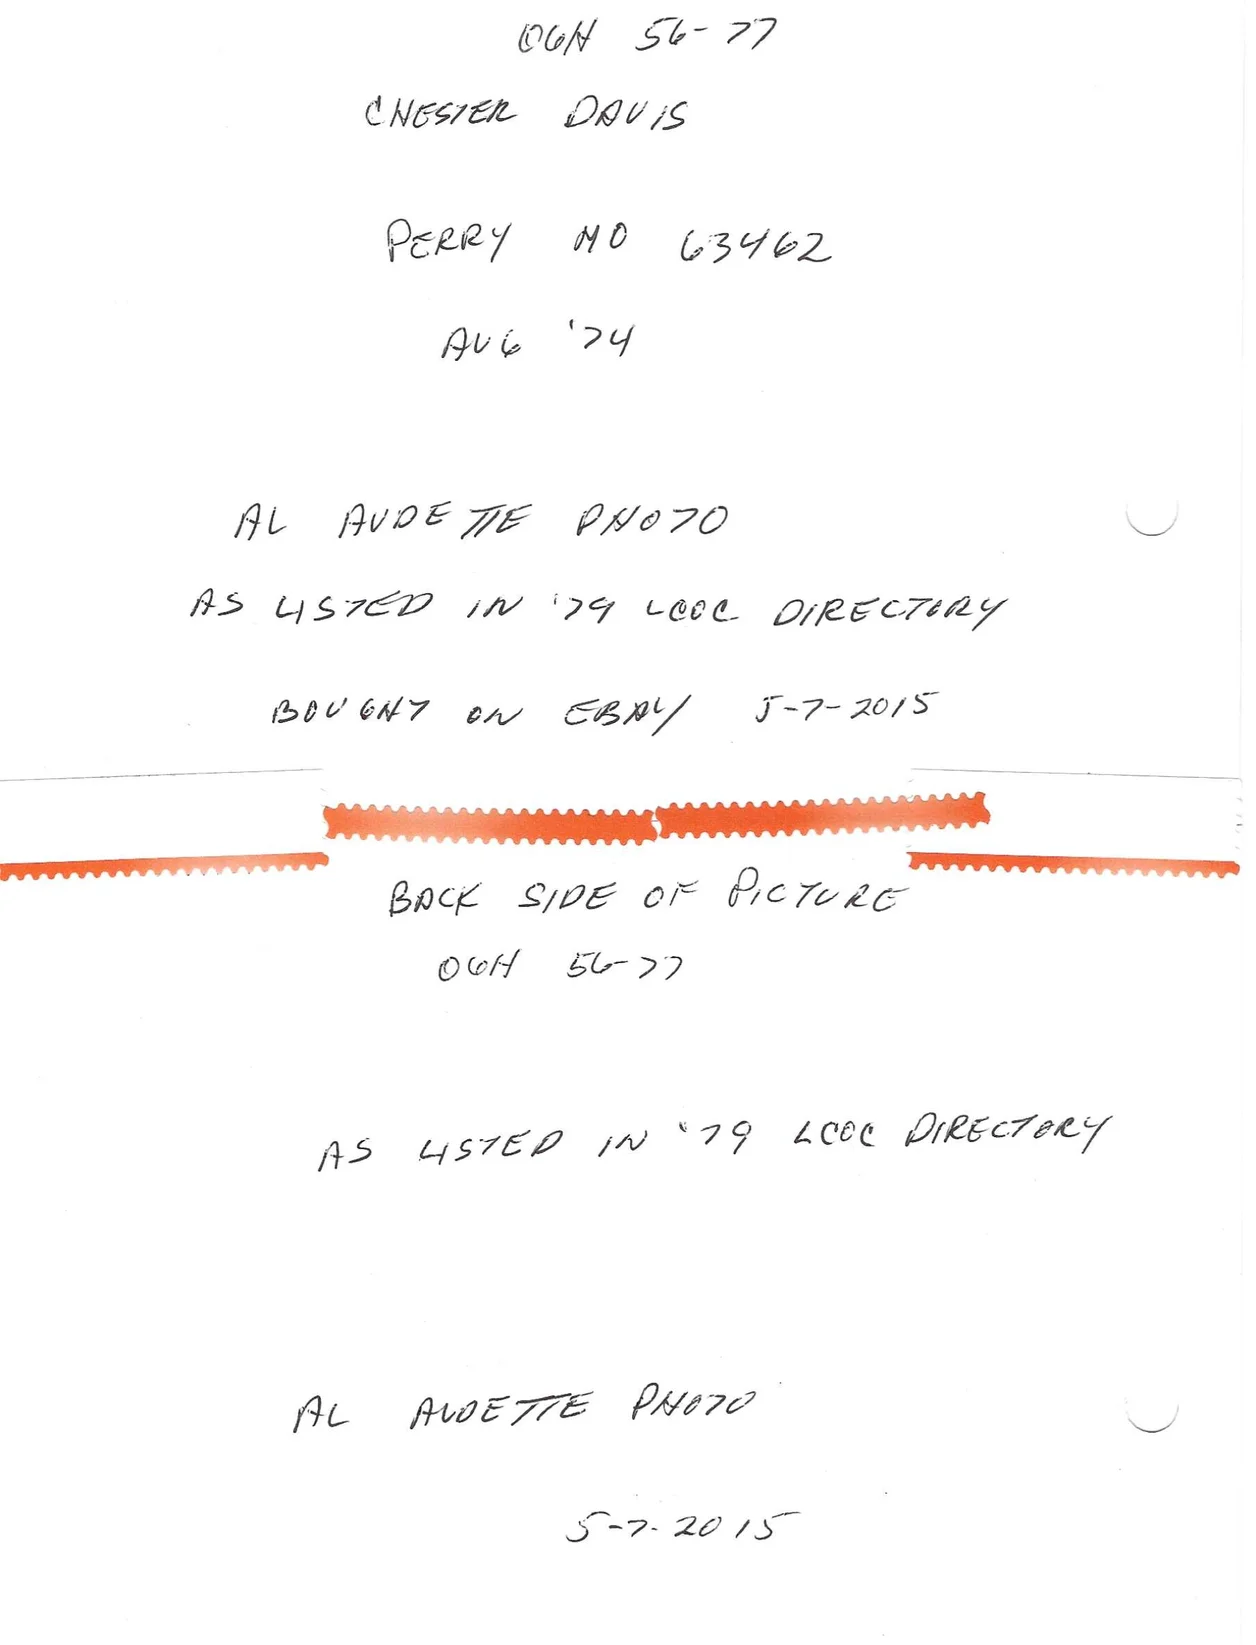 OGH 56-77
CHESTER DAVIS
PERRY MO 63462
AUG '74
AL AUDETTE PHOTO
AS LISTED IN '79 LCOC DIRECTORY
BOUGHT ON EBAY 5-7-2015
BACK SIDE OF PICTURE
OGH 56-77
AS LISTED IN '79 LCOC DIRECTORY
AL AUDETTE PHOTO
5-7-2015